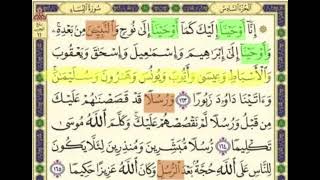 الجزء السادس سورة النساء
۞ إِنَّا أَوْحَيْنَا إِلَيْكَ كَمَا أَوْحَيْنَا إِلَىٰ نُوحٍ وَالنَّبِيِّينَ مِنْ بَعْدِهِ
وَأَوْحَيْنَا إِلَىٰ إِبْرَاهِيمَ وَإِسْمَاعِيلَ وَإِسْحَاقَ وَيَعْقُوبَ
وَالْأَسْبَاطِ وَعِيسَىٰ وَأَيُّوبَ وَيُونُسَ وَهَارُونَ وَسُلَيْمَانَ
وَآتَيْنَا دَاوُودَ زَبُورًا ١٦٣ وَرُسُلًا قَدْ قَصَصْنَاهُمْ عَلَيْكَ
مِنْ قَبْلُ وَرُسُلًا لَمْ نَقْصُصْهُمْ عَلَيْكَ وَكَلَّمَ اللَّهُ مُوسَىٰ
تَكْلِيمًا ١٦٤ رُسُلًا مُبَشِّرِينَ وَمُنْذِرِينَ لِئَلَّا يَكُونَ
لِلنَّاسِ عَلَى اللَّهِ حُجَّةٌ بَعْدَ الرُّسُلِ وَكَانَ اللَّهُ عَزِيزًا حَكِيمًا ١٦٥